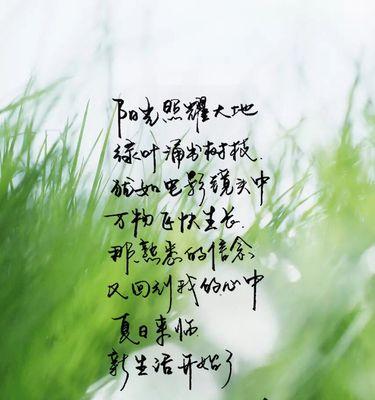 阳光照耀大地
绿叶涌出树枝.
犹如电影镜头中
万物正快生长.
那熟悉的信念
又回到我的心中
夏日来临
新生活开始了